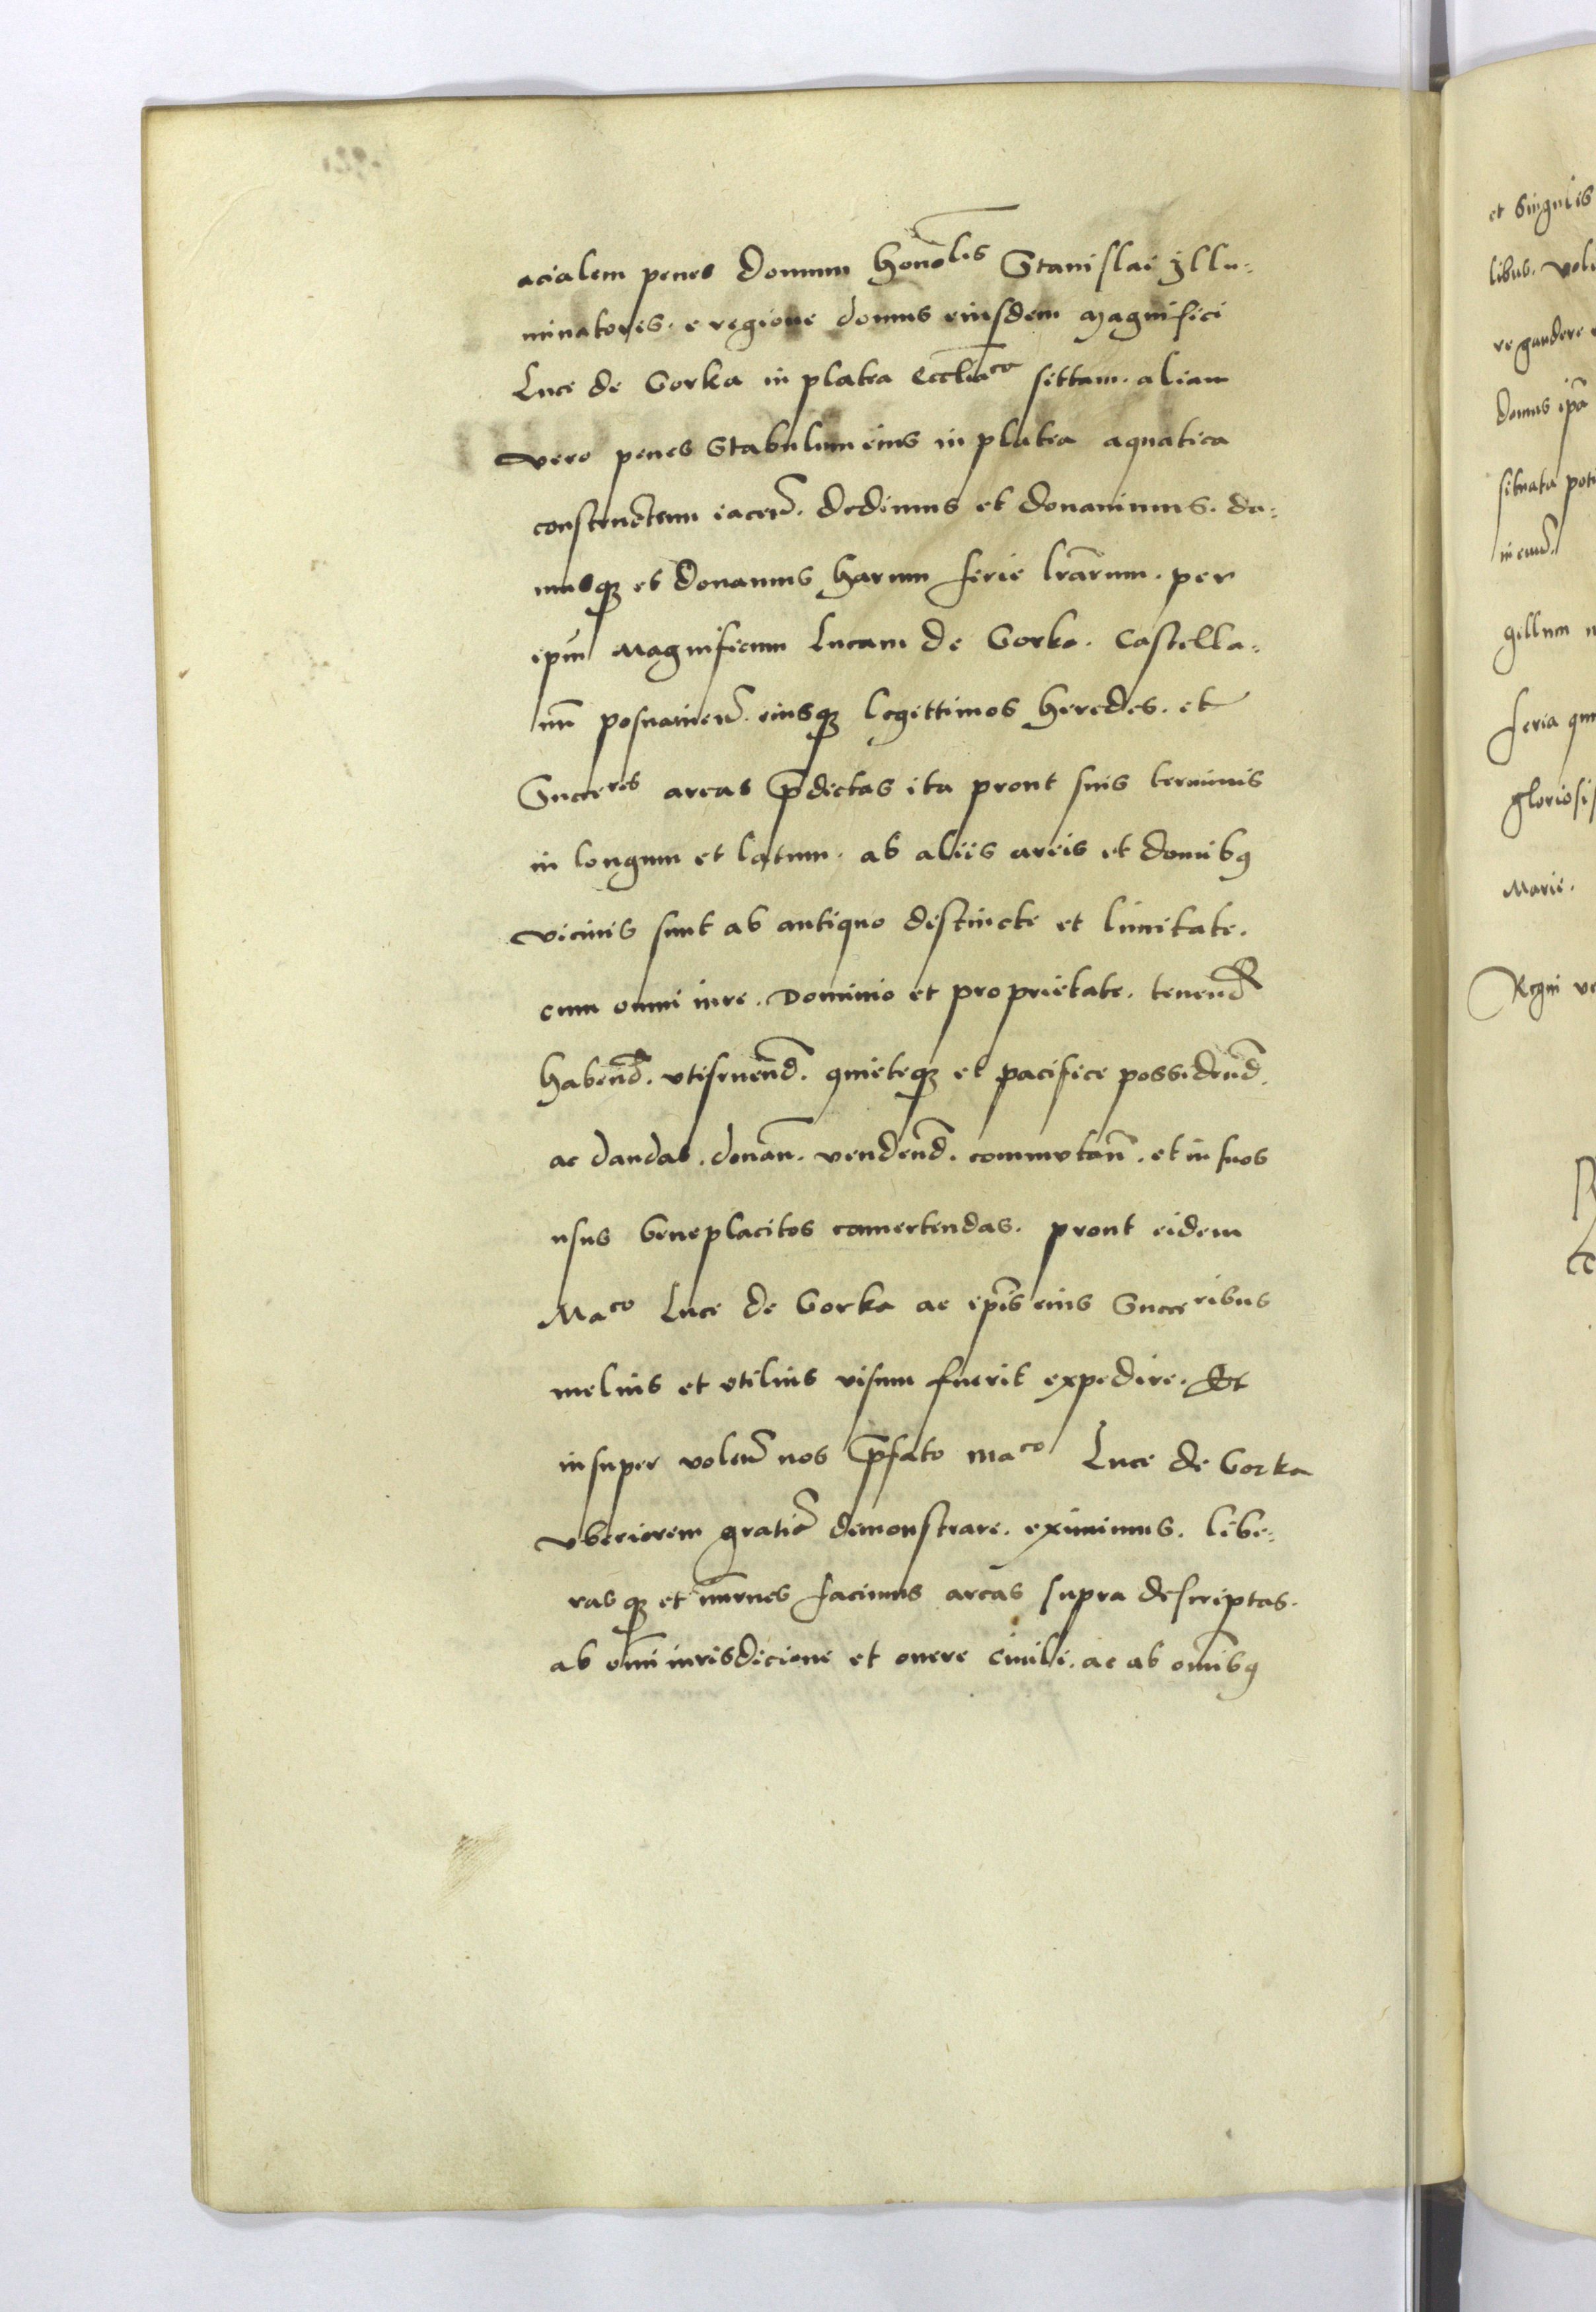 acialem penes domum honolis Stanislai Jllu-
minatoris. e regione domus eiusdem Magnifici
Luce de Gorka in platea sittam. aliam
vero penes Stabulum eius in platea aquatica
constructam iacen͂. dedimus et donauimus. da-
musqꝫ et donamus harum serie lr̄arum. per
ip̄m Magnificum Lucam de Gorka. Castella-
nū posnanien͂. eiusqꝫ legittimos heredes. et
Succeres areas p̄dictas ita prout suis terminis
in longum et latum. ab aliis areis et domibꝯ
vicinis sunt ab antiquo distincte et limitate.
cum omni iure. Dominio et proprietate. tenend̄
habend̄. vtifruend̄. quieteqꝫ et pacifice possidend̄.
ac dandas. donan̄. vendend̄. commvtan̄. et in suos
usus beneplacitos conuertendas. prout eidem
Maco Luce de Gorka ac ip̄is eius Succeribus
melius et vtilius visum fuerit expedire. Et
insuper volen͂ nos p̄fato maco Luce de Gorka
vberiorem gratiā demonstrare. eximimus. libe-
rasqꝫ et facimus areas supra descriptas.
ab om̄i iurisdicione et onere ciuili. ac ab om̄ibꝯ
et Singulis
libus.
re gaudere
domus ip̄a
situata
gillum
feria
Marie.
Regni